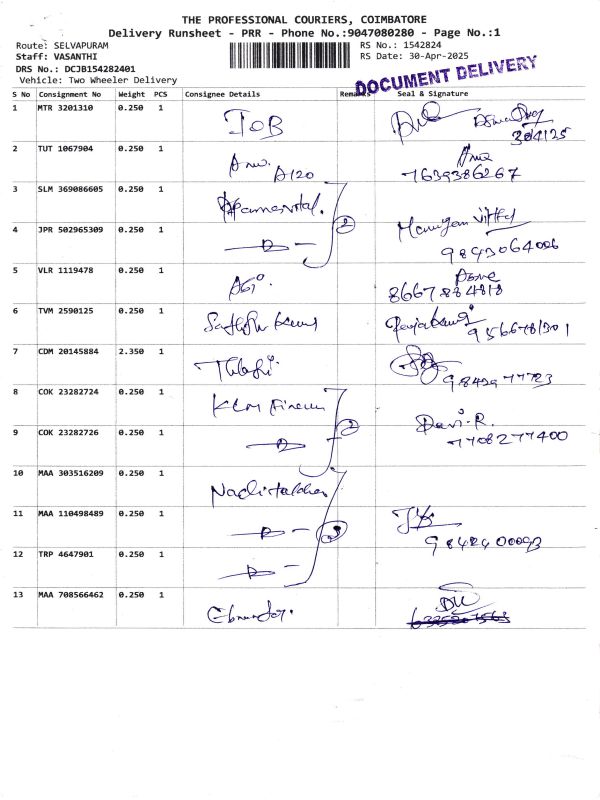 THE PROFESSIONAL COURIERS, COIMBATORE
Delivery Runsheet - PRR - Phone No.:9047080280 - Page No.:1
Route: SELVAPURAM RS No.: 1542824
Staff: VASANTHI RS Date: 30-Apr-2025
DRS No.: DCJB154282401
Vehicle: Two Wheeler Delivery
DOCUMENT DELIVERY
S No Consignment No Weight PCS Consignee Details Remarks Seal & Signature
1 MTR 3201310 0.250 1 IOB
30/4/25
2 TUT 1067904 0.250 1 Anu. A120
7639386267
3 SLM 369086605 0.250 1
4 JPR 502965309 0.250 1 2 Murugan Vittal
9843064006
5 VLR 1119478 0.250 1
8667884818
6 TVM 2590125 0.250 1 Sathish Kumar
9566781301
7 CDM 20145884 2.350 1
9842977723
8 COK 23282724 0.250 1 KLM Finance
9 COK 23282726 0.250 1 2 Devi.R.
7708277400
10 MAA 303516209 0.250 1
11 MAA 110498489 0.250 1 3
9842400093
12 TRP 4647901 0.250 1
13 MAA 708566462 0.250 1